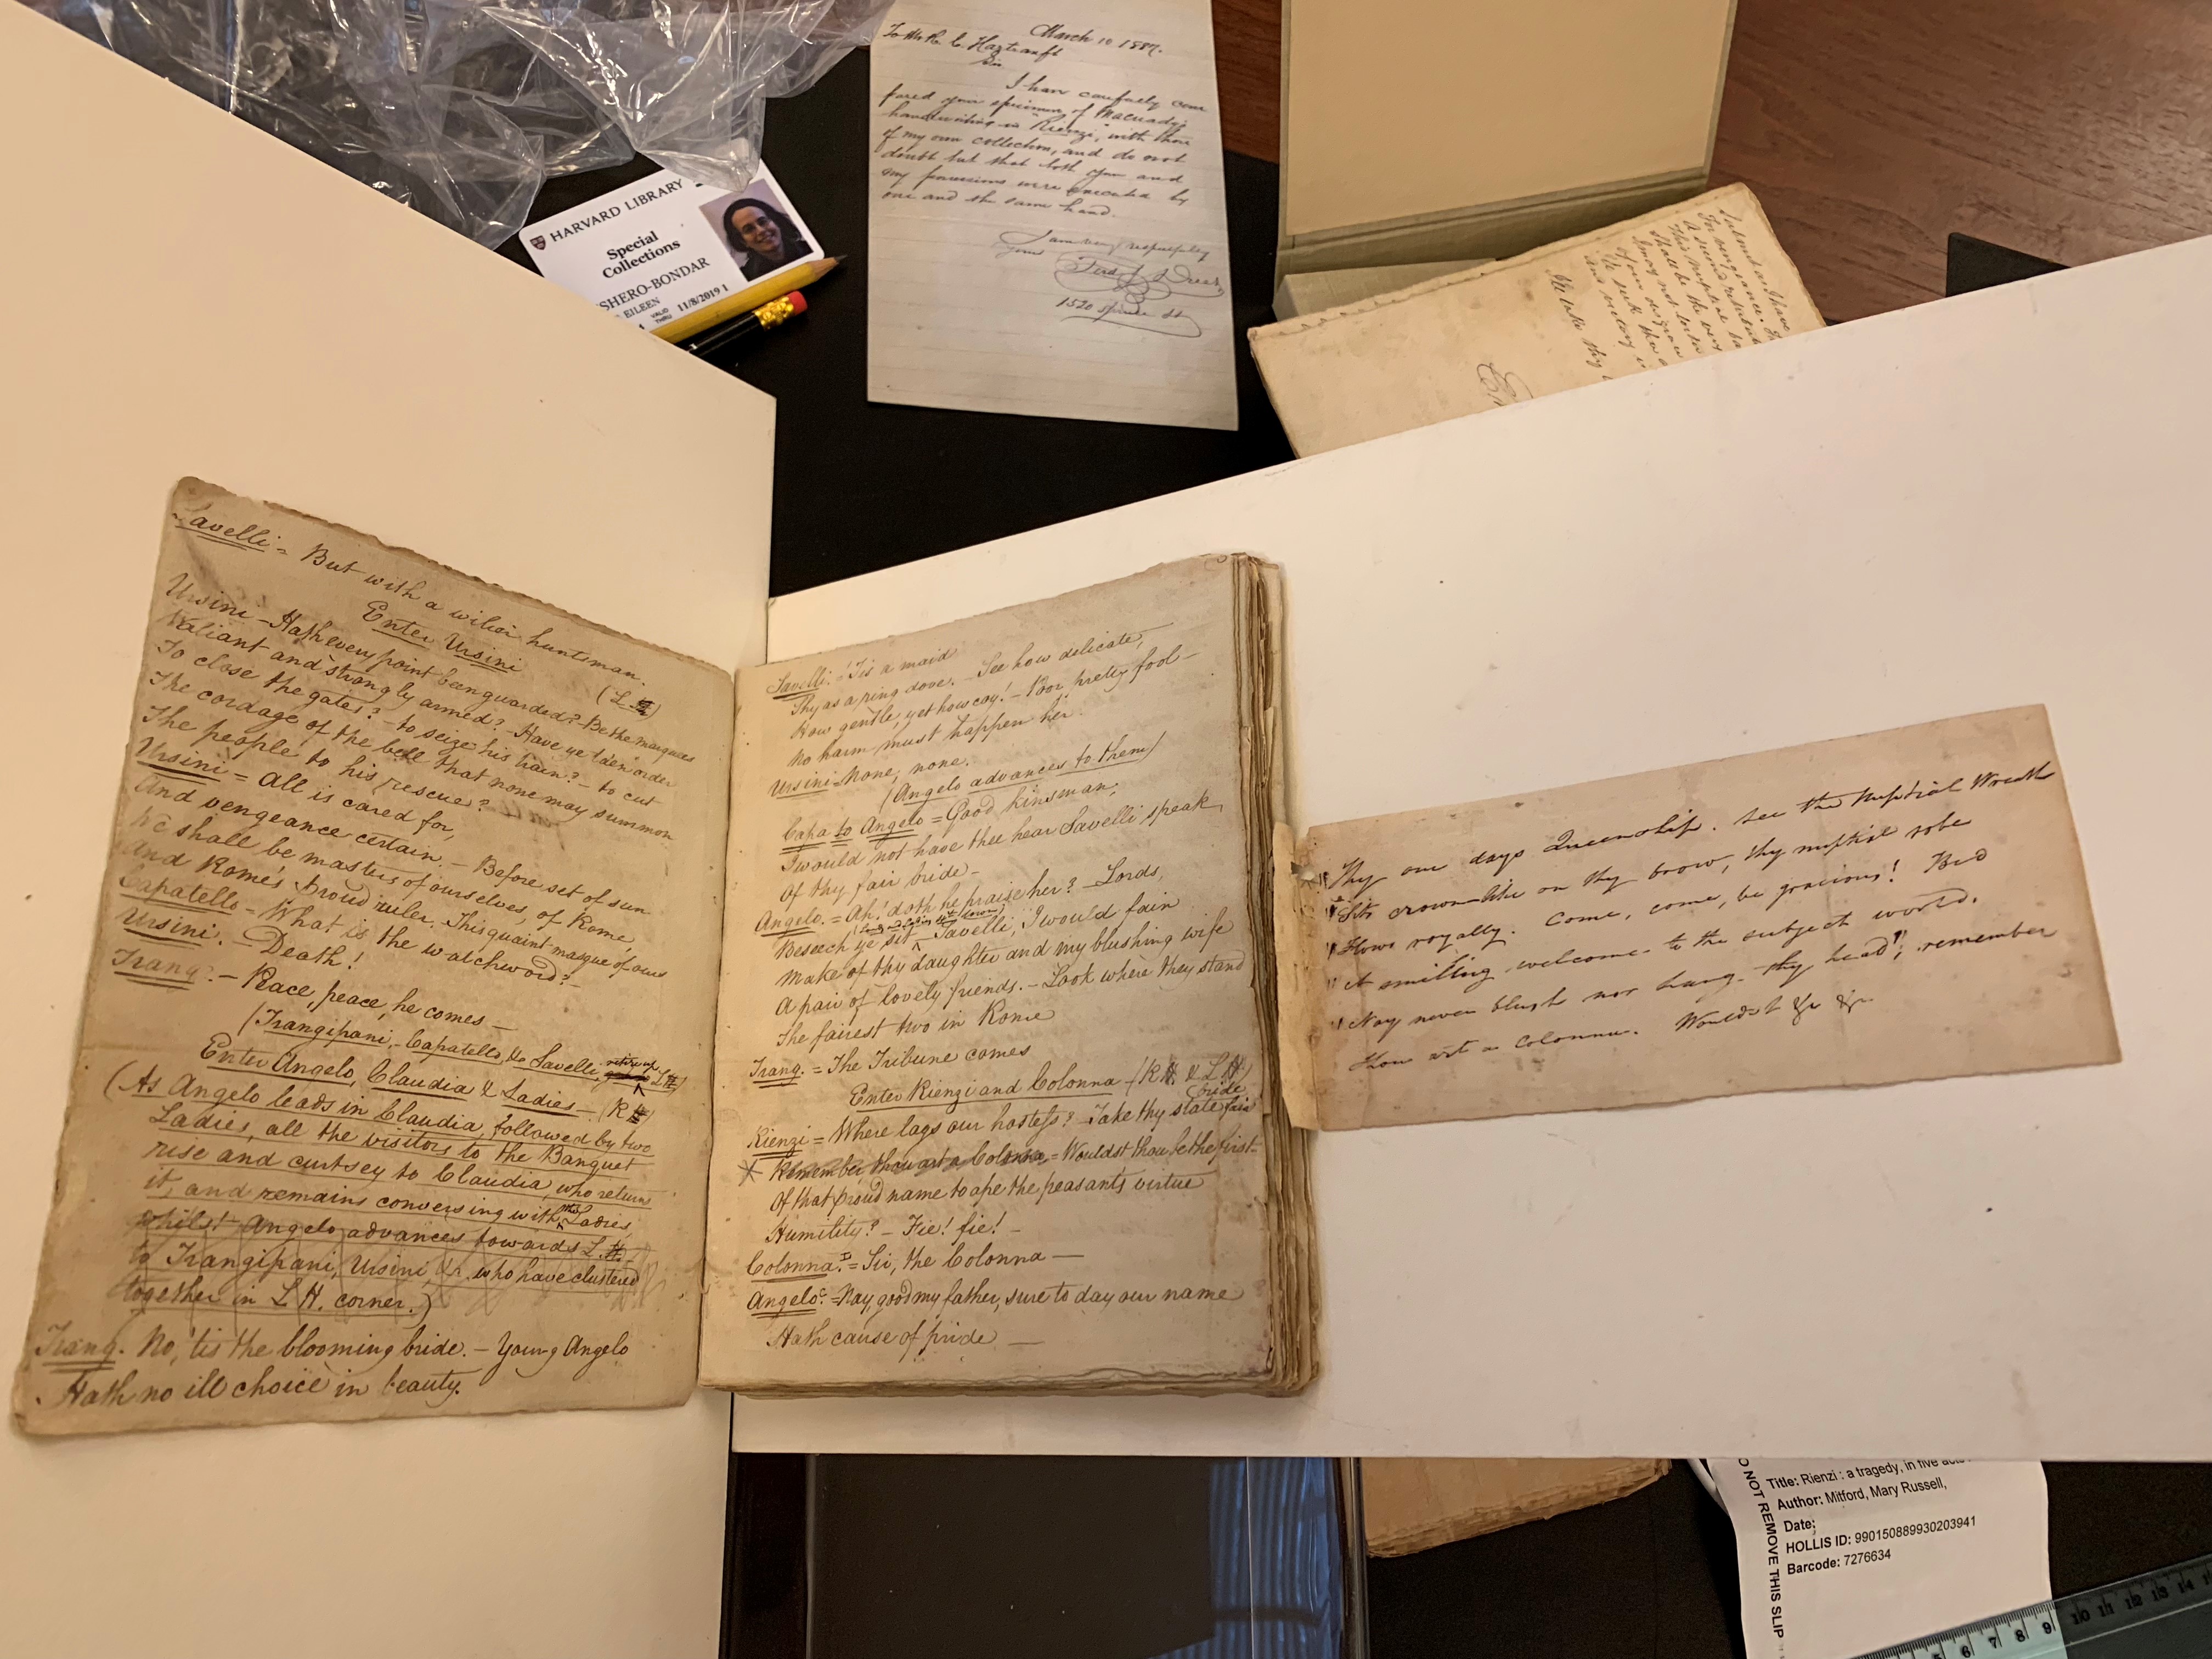 HARVARD LIBRARY
Special
Collections
SHERO-BONDAR
EILEEN
VALID
THRU
11/8/2019 1
March 10 1887.
To Mr R. C. Haztranft
Sir
I have carefully com
pared your specimen of Macready's
handwriting in "Rienzi", with those
of my own collection, and do not
doubt but that both your and
my possessions were executed by
one and the same hand.
I am very respectfully
yours
1520 Spruce St
Savelli = But with a wilier huntsman.
Enter Ursini (L.H)
Ursini – Hath every point been guarded? – Be the masquers
Valiant and strongly armed? – Have ye ta'en order
To close the gates? – to seize his train? – to cut
The cordage of the bell that none may summon
The people to his rescue?
Ursini = All is cared for,
And vengeance certain. – Before set of sun
We shall be masters of ourselves, of Rome,
And Rome's proud ruler. This quaint masque of ours
Capatello – What is the watchword? –
Ursini. – Death!
Frang: – Peace, peace, he comes –
(Frangipani, Capatello, & Savelli, retire up L H)
Enter Angelo, Claudia & Ladies – (R H)
(As Angelo leads in Claudia, followed by two
Ladies, all the visitors to the Banquet
rise and curtsey to Claudia, who returns
it, and remains conversing with the Ladies,
whilst Angelo advances towards L.H.
to Frangipani, Ursini, &c. who have clustered
together in L H. corner.)
Frang. No, 'tis the blooming bride. – Young Angelo
Hath no ill choice in beauty.
Savelli: 'Tis a maid
Shy as a ring dove. – See how delicate,
How gentle, yet how coy! – Poor pretty fool –
No harm must happen her.
Ursini None, none.
(Angelo advances to them)
Capa to Angelo = Good kinsman;
I would not have thee hear Savelli speak
Of thy fair bride –
Angelo. = Ah! doth he praise her? – Lords,
Beseech ye sit – Savelli, I would fain
Make of thy daughter and my blushing wife
A pair of lovely friends. – Look where they stand
The fairest two in Rome
Frang. = The Tribune comes
Enter Rienzi and Colonna – (R H & L.H)
bride
Rienzi = Where lags our hostess? Take thy state fair
* Remember, thou art a Colonna, = Wouldst thou be the first
Of that proud name to ape the peasant's virtue
Humility? – Fie! fie! –
Colonna. = Sir, the Colonna –
Angelo. = Nay, good my father, sure to day our name
Hath cause of pride –
"Thy one days Queenship. See the Nuptial Wreath
"Sits crown-like on thy brow, thy nuptial robe
"Flows royally. Come, come, be gracious! Bid
"A smiling welcome to the subject world.
"Nay never blush nor hang thy head"; remember
Thou art a Colonna. Wouldst &c &c.
DO NOT REMOVE THIS SLIP
Title: Rienzi : a tragedy, in five acts
Author: Mitford, Mary Russell,
Date:
HOLLIS ID: 990150889930203941
Barcode: 7276634
5 6 7 8 9 10 11 12 13 14